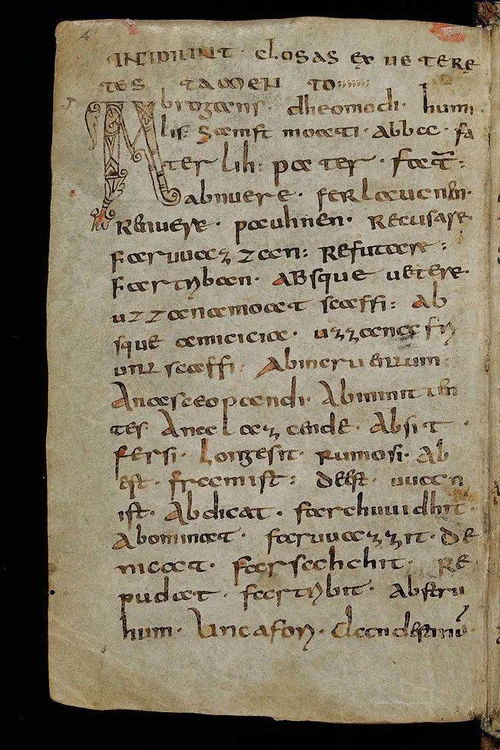 INCIPIUNT closas ex uetere
tes tamen to
Abrogans. dheomodi. humi
lis. samft moati. abba. fa
ter lih: pater. fater:
abnuere. ferlaucnen.
Renuere. pauhnen. Recusare.
faruuazzan: Refutare:
fartriban. ABsque uetere.
uzzana moat scaffi: Ab
sque amicicia. uzzana fri
unt scaffi. Abincruentum.
Anascaopandi. Abiminit
ter Anaclaz ende. Absit.
fersi. longesit. rumosi. Ab
est. framist: deest. uuan
ist. Abdicat. farchuuidhit.
Abominat. faruuazzit. de
nicat. farsechchit. Re
pudiat. fartribit. Abstru
hum. Uncafori. Clandestinū.